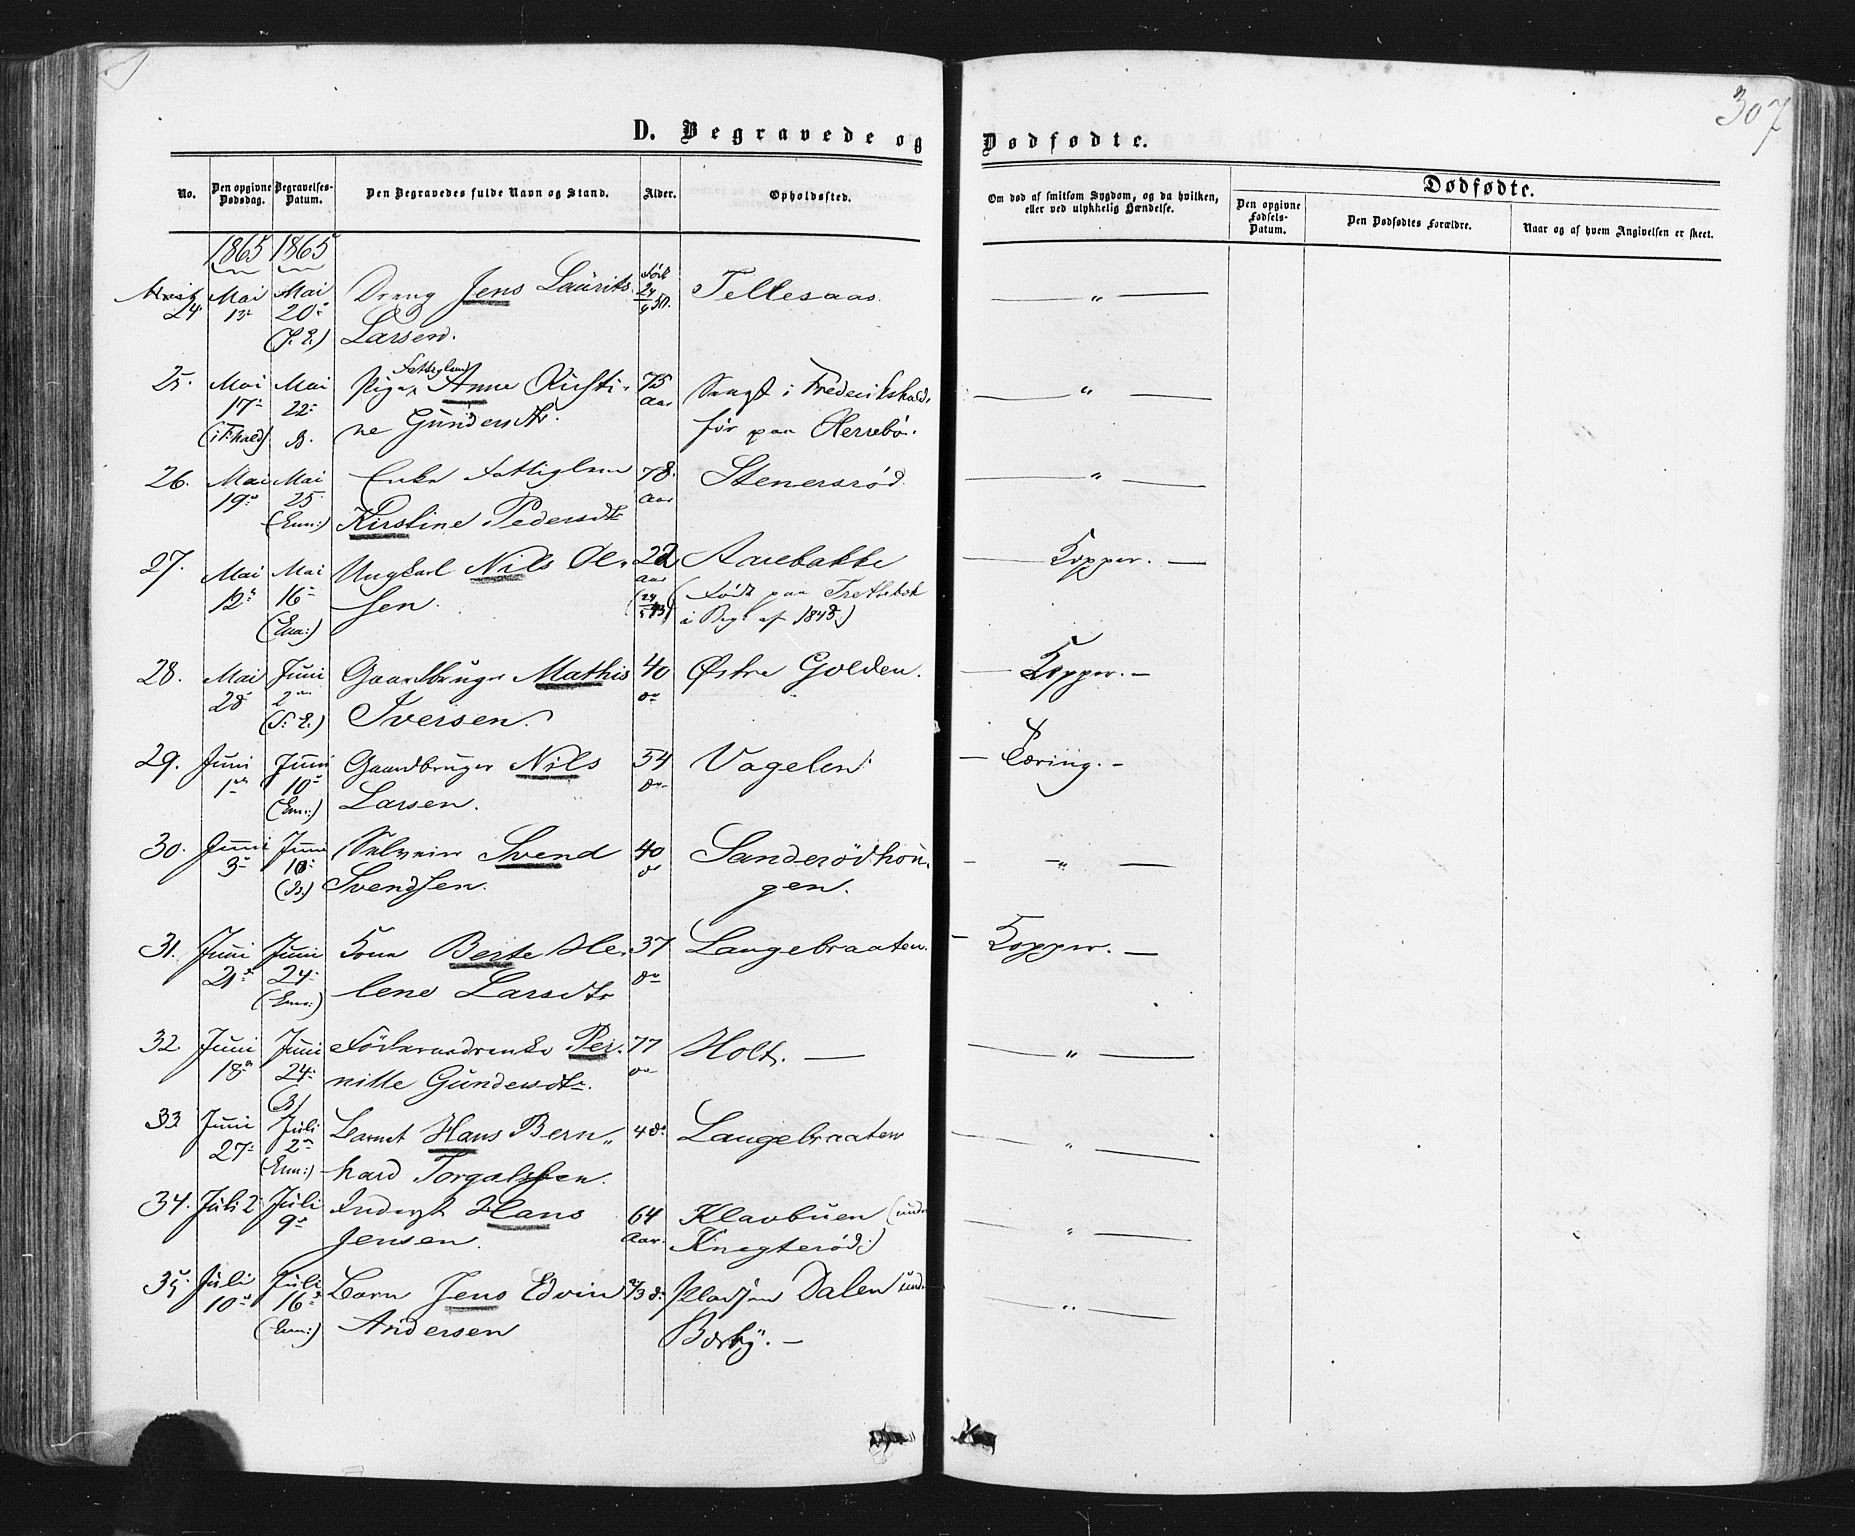 307
D. Begravede og Dødfødte.
No. Den opgivne Dødsdag. Begravelses-Datum. Den Begravedes fulde Navn og Stand. Alder. Opholdssted. Om død af smitsom Sygdom, og da hvilken, eller ved ulykkelig Hændelse. Dødfødte.
Den opgivne Fødsels-Datum. Den Dødfødtes Forældre. Naar og af hvem Angivelsen er skeet.
1865 1865
24 Mai 13 Mai 20 Dreng Jens Laurits Født 24/6 50. Tellesaas. — " —
Larsen.
25. Mai Mai Pige, Fattiglem Anne Kristi- 75 Sengst i Frederikshald, — " —
17 22 ne Gundersdtr. Aar før paa Herrebø.
(i F:hald) B.
26. Mai Mai Enke Fattiglem 78 Stenersrød — " —
19 25 (Enn:) Kirstine Pedersdtr Aar
27. Mai Mai Ungkarl Nils Ol- 22 Aar Arebakke — Kopper. —
12 16 (Enn:) sen. (24/5 43) (Født paa
i Beg. af 1843.)
28. Mai Juni Gaardbruger Mathis 40 Østre Golden. — Kopper. —
28 2 (I. E.) Iversen.
29. Juni Juni Gaardbruger Nils 54 Vagelen — Tæring. —
1 10 (Enn:) Larsen.
30. Juni Juni Selveier Svend 40 Sanderødhou- — " —
3 10 (B.) Svendsen. gen.
31. Juni Juni Kone Berte He- 37 Langebraaten. — Kopper. —
21 24 (Enn:) lene Larsdtr
32. Juni Juni Føderaadsenke Per- 77 Holt. — — " —
18 24 (B) nille Gundersdtr.
33 Juni Juli Barnet Hans Bern- 4 Langebraaten — " —
27 2 (Enn:) hard Torgalssen.
34. Juli 2 Juli Inderst Hans 64 Klavbuen (under — " —
9 Jensen. Aar. Knegterød.)
35. Juli Juli Barn Jens Edvin Pladsen Dalen under — " —
10 16 (Enn:) Andersen Børby. —